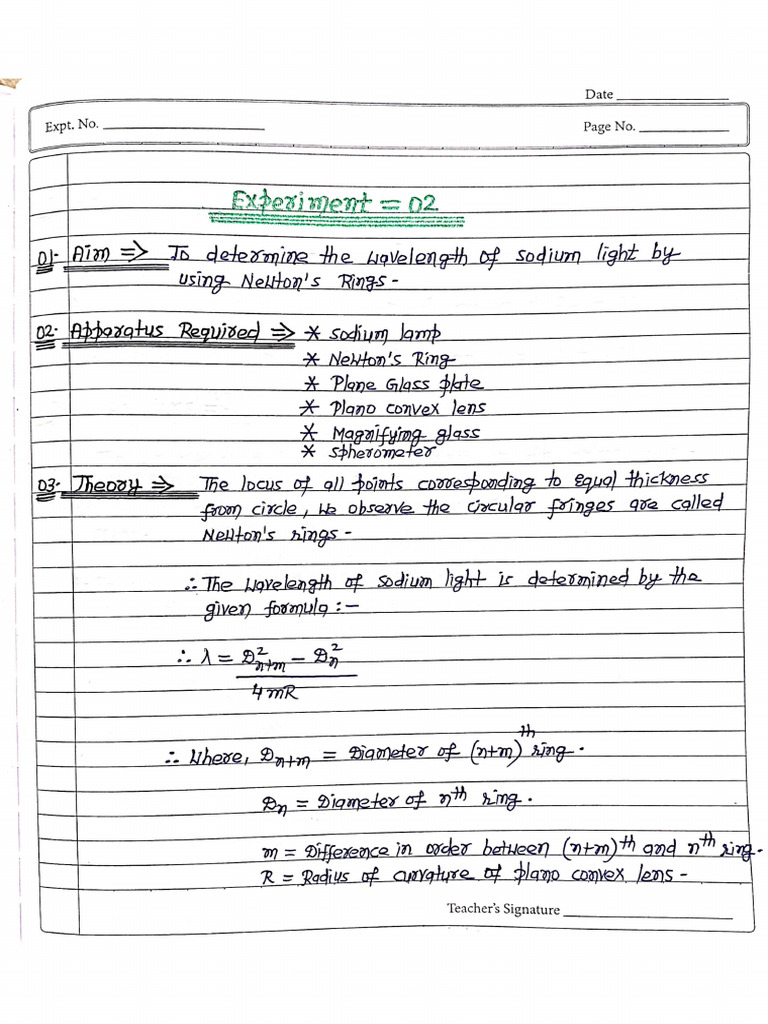 Date
Expt. No.
Page No.
Experiment = 02
01- Aim => To determine the wavelength of sodium light by
using Newton's Rings -
02- Apparatus Required => * Sodium lamp
* Newton's Ring
* Plane Glass plate
* Plano convex lens
* Magnifying glass
* Spherometer
03- Theory => The locus of all points corresponding to equal thickness
from circle, we observe the circular fringes are called
Newton's rings -
∴ The wavelength of sodium light is determined by the
given formula :-
∴ λ = D²ₙ₊ₘ - D²ₙ
4mR
∴ Where, Dₙ₊ₘ = Diameter of (n+m)th ring.
Dₙ = Diameter of nth ring.
m = Difference in order between (n+m)th and nth ring.
R = Radius of curvature of plano convex lens -
Teacher's Signature